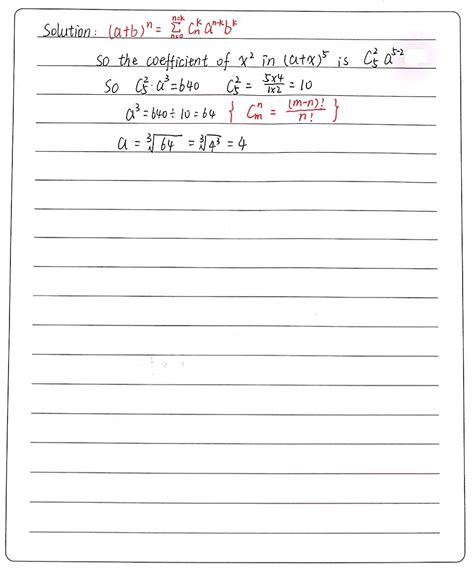 Solution: (a+b)^n = \sum_{n=0}^{n=k} C_n^k a^{n-k} b^k
So the coefficient of x² in (a+x)^5 is C_5^2 a^{5-2}
So C_5^2 · a³ = 640 C_5^2 = \frac{5×4}{1×2} = 10
a³ = 640 ÷ 10 = 64 { C_m^n = \frac{(m-n)!}{n!} }
a = \sqrt[3]{64} = \sqrt[3]{4^3} = 4